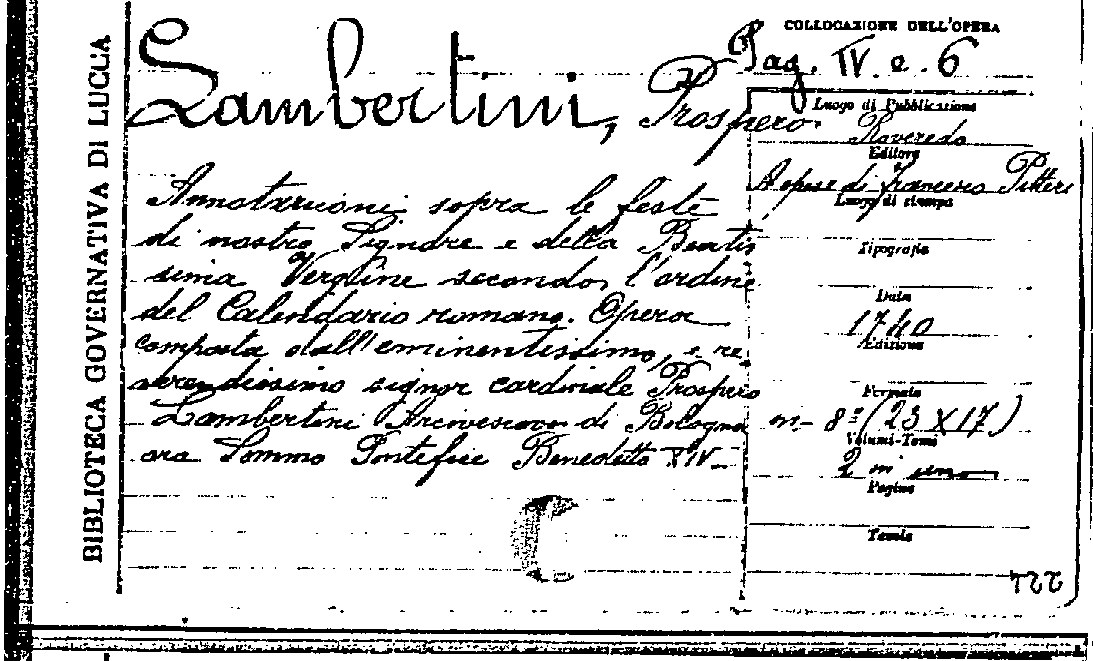 BIBLIOTECA GOVERNATIVA DI LUCCA
COLLOCAZIONE DELL'OPERA
Pag. IV. e. 6
Lambertini, Prospero
Annotazioni sopra le feste
di nostro Signore e della Beatis
sima Vergine secondo l'ordine
del Calendario romano. Opera
composta dall'eminentissimo, e re
verendissimo signor cardinale Prospero
Lambertini Arcivescovo di Bologna
ora Sommo Pontefice Benedetto XIV
Luogo di Pubblicazione
Roveredo
Editore
A spese di Francesco Pitteri
Luogo di stampa
Tipografia
Data
1740
Edizione
Formato
in- 8º (23 X 17)
Volumi-Tomi
2 in uno
Pagine
Tavole